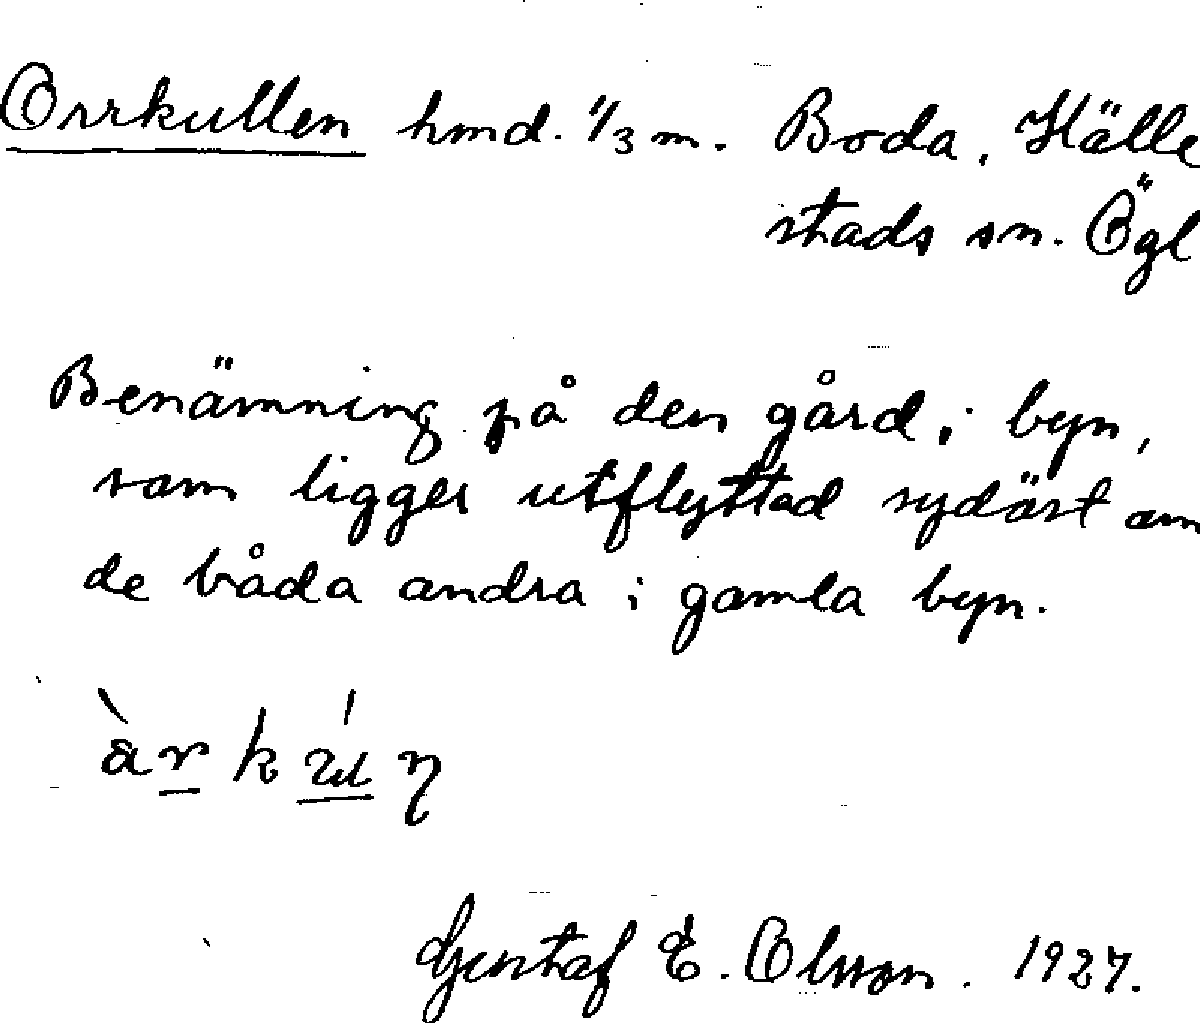 Orrkullen hmd. 1/3 m. Boda, Hälle
stads sn. Ögl
Benämning på den gård, i byn,
som ligger utflyttad sydöst om
de båda andra i gamla byn.
Gustaf E. Olsson. 1927.